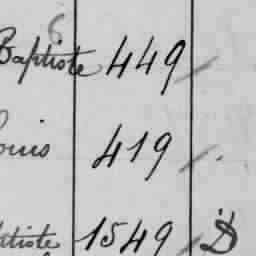 6
Baptiste 449
ouis 419
tiste 1549